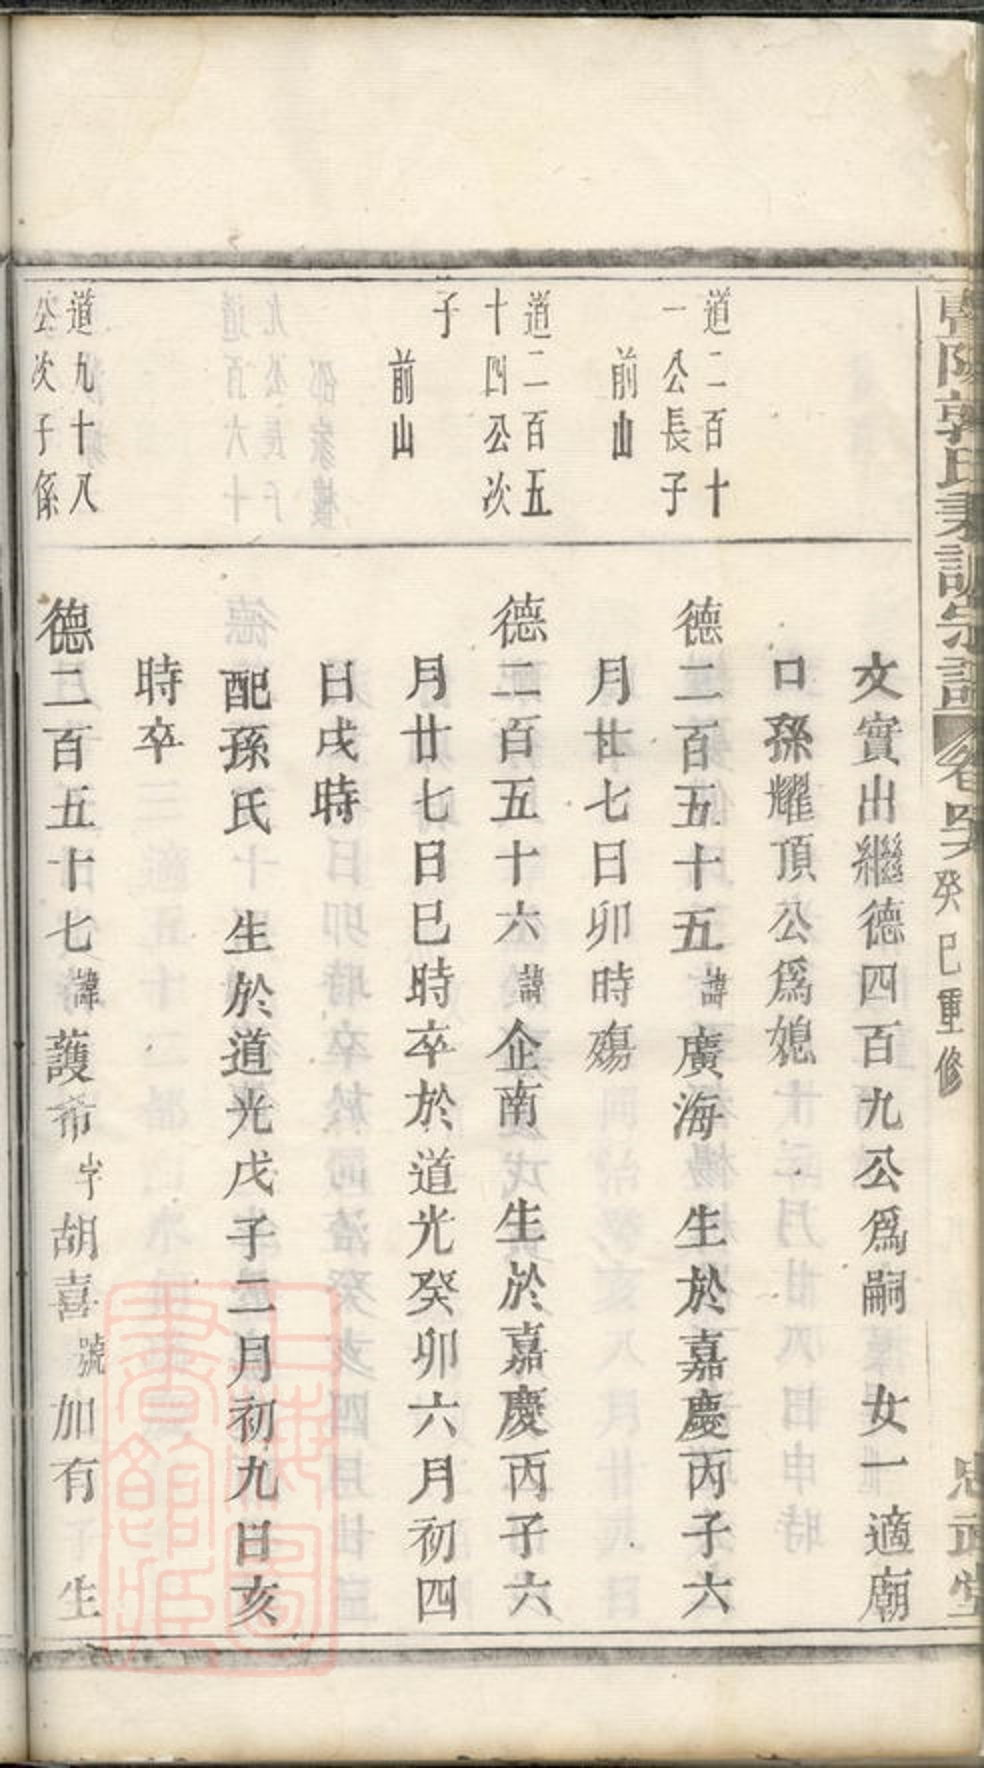 暨陽郭氏兼訓宗譜 卷 癸巳重修 忠武堂
文實出繼德四百九公爲嗣 女一適廟
口孫耀頂公爲媳
道二百十
一公長子
前山
德二百五十五諱廣海 生於嘉慶丙子六
月廿七日卯時殤
道二百五
十四公次
子
前山
德二百五十六諱企南 生於嘉慶丙子六
月廿七日巳時卒於道光癸卯六月初四
日戌時
配孫氏 生於道光戊子二月初九日亥
時卒
道九十八
公次子係
德二百五十七諱護希字胡喜號加有 生
上海圖書館藏